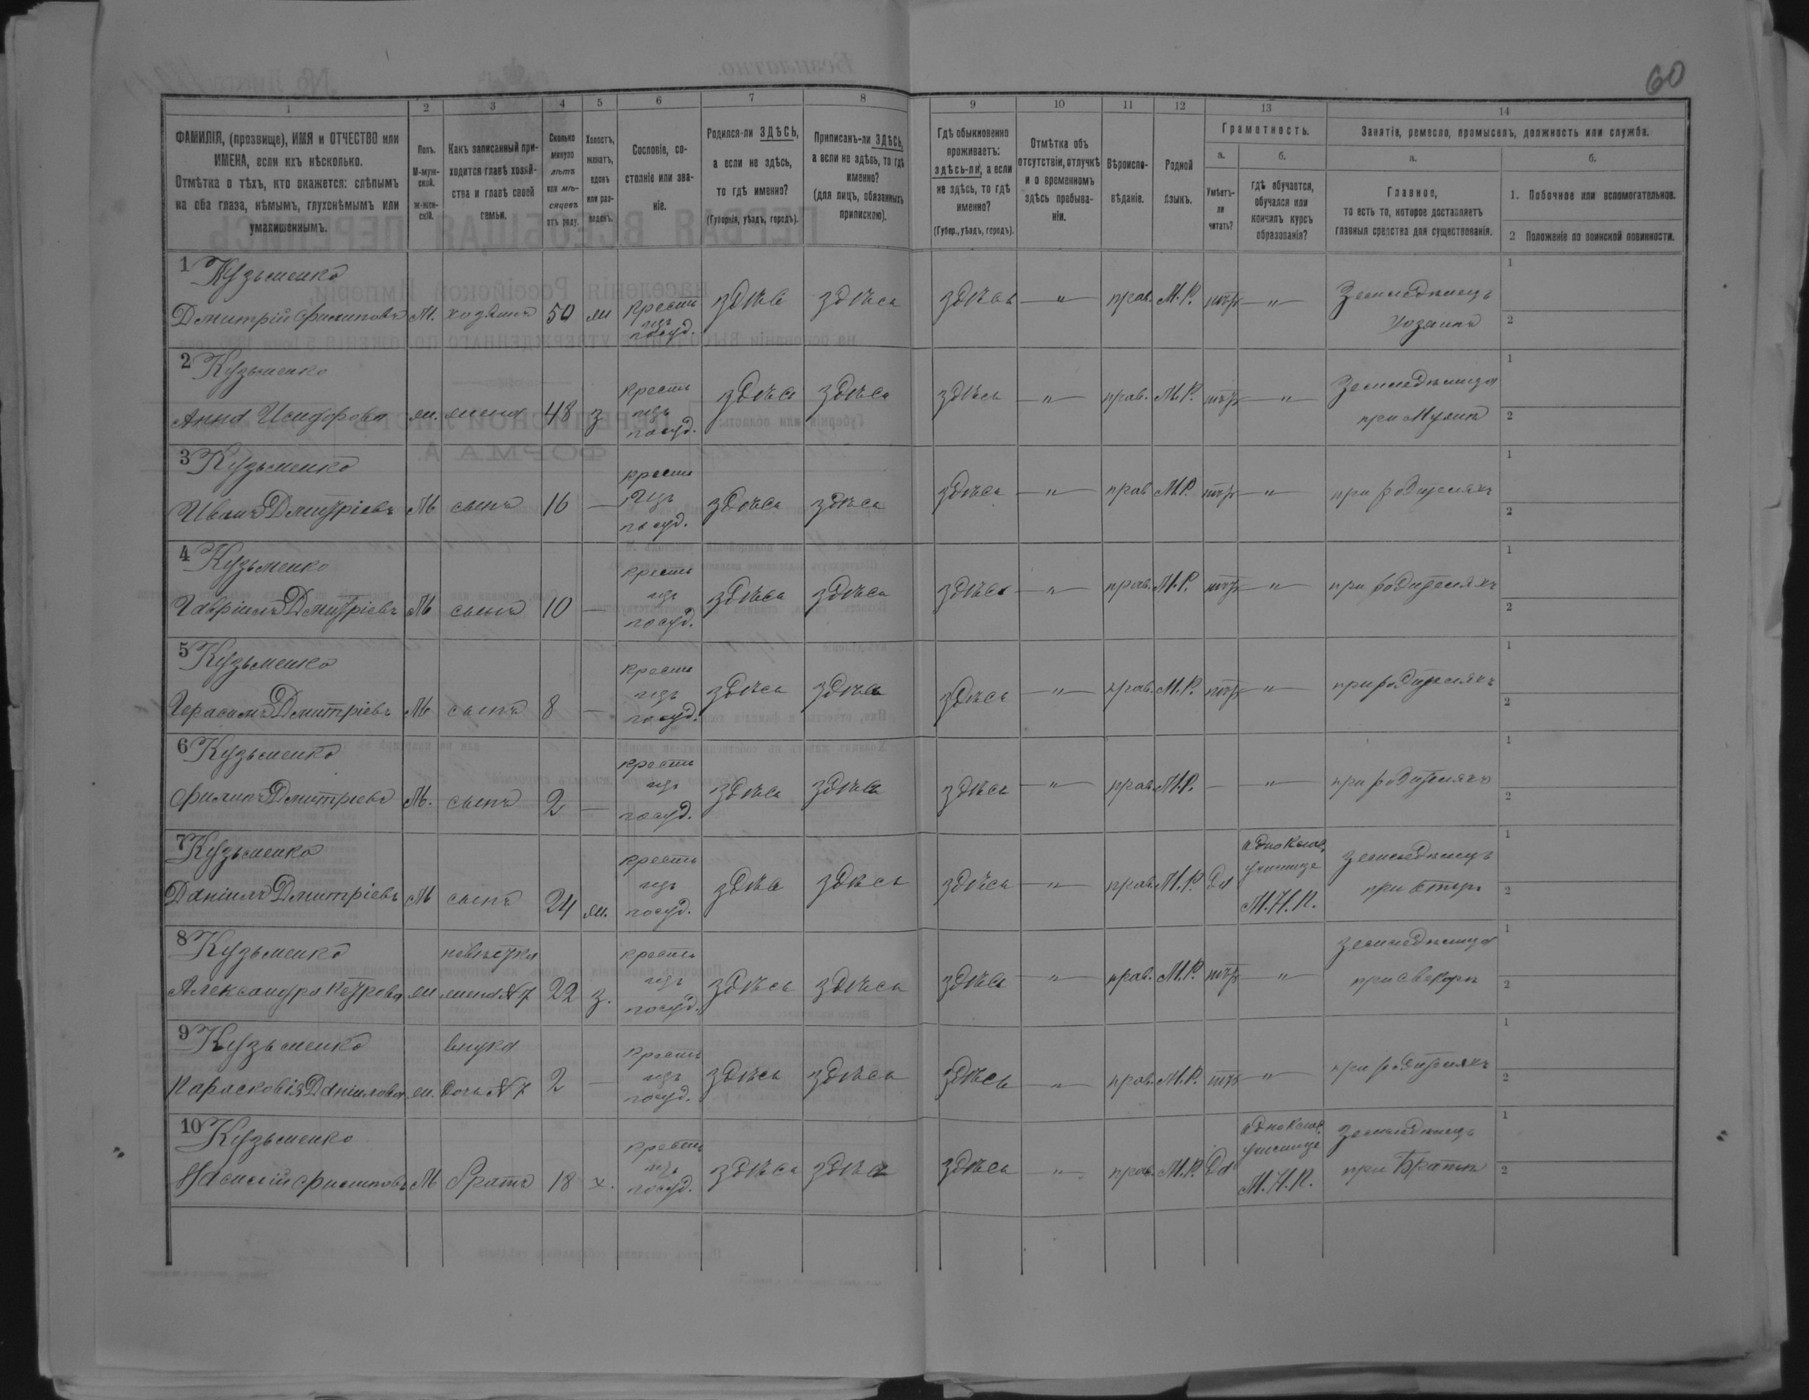 60
1 2 3 4 5 6 7 8 9 10 11 12 13 14
ФАМИЛІЯ, (прозвище), ИМЯ и ОТЧЕСТВО или
ИМЕНА, если ихъ нѣсколько.
Отмѣтка о тѣхъ, кто окажется: слѣпымъ
на оба глаза, нѣмымъ, глухонѣмымъ или
умалишеннымъ.
Полъ.
М-муж-
ской.
Ж-жен-
скій.
Какъ записанный при-
ходится главѣ хозяй-
ства и главѣ своей
семьи.
Сколько
минуло
лѣтъ
или мѣ-
сяцевъ
отъ роду.
Холостъ,
женатъ,
вдовъ
или раз-
веденъ.
Сословіе, со-
стояніе или зва-
ніе.
Родился-ли ЗДѢСЬ,
а если не здѣсь,
то гдѣ именно?
(Губернія, уѣздъ, городъ).
Приписанъ-ли ЗДѢСЬ,
а если не здѣсь, то гдѣ
именно?
(для лицъ, обязанныхъ
припискою).
Гдѣ обыкновенно
проживаетъ:
здѣсь-ли, а если
не здѣсь, то гдѣ
именно?
(Губер., уѣздъ, городъ).
Отмѣтка объ
отсутствіи, отлучкѣ
и о временномъ
здѣсь пребыва-
ніи.
Вѣроиспо-
вѣданіе.
Родной
языкъ.
Грамотность.
а.
Умѣетъ-
ли
читать?
б.
гдѣ обучается,
обучался или
кончилъ курсъ
образованія?
Занятія, ремесло, промыселъ, должность или служба.
а.
Главное,
то есть то, которое доставляетъ
главныя средства для существованія.
б.
1. Побочное или вспомогательное.
2 Положеніе по воинской повинности.
1 Кузьменко
Дмитрій Филиповъ М. хозяинъ 50 ж крестьянъ госуд. здѣсь здѣсь здѣсь — " — прав. М.Р. нѣтъ — " — Земледѣлецъ хозяинъ
1
2
2 Кузьменко
Анна Исидорова ж. жена 48 з крестьянъ госуд. здѣсь здѣсь здѣсь — " — прав. М.Р. нѣтъ — " — Земледѣлица при Мужѣ
1
2
3 Кузьменко
Иванъ Дмитріевъ М сынъ 16 — здѣсь здѣсь здѣсь — " — прав М.Р. нѣтъ — " — при родителяхъ
1
2
4 Кузьменко
Гавріилъ Дмитріевъ М сынъ 10 — здѣсь здѣсь здѣсь — " — прав. М.Р. нѣтъ — " — при родителяхъ
1
2
5 Кузьменко
Герасимъ Дмитріевъ М сынъ 8 — здѣсь здѣсь здѣсь — " — прав. М.Р. нѣтъ — " — при родителяхъ
1
2
6 Кузьменко
Филипъ Дмитріевъ М. сынъ 2 — здѣсь здѣсь здѣсь — " — прав. М.Р. — — " — при родителяхъ
1
2
7 Кузьменко
Даніилъ Дмитріевъ М сынъ 24 ж. здѣсь здѣсь здѣсь — " — прав. М.Р. Да однокласъ училище М.Н.П. земледѣлецъ при отцѣ
1
2
8 Кузьменко невѣстка
Александра Петрова ж жена №7 22 з. здѣсь здѣсь здѣсь — " — прав. М.Р. нѣтъ — " — земледѣлица при свекорѣ
1
2
9 Кузьменко внука
Парасковія Даніилова ж. дочь №7 2 — здѣсь здѣсь здѣсь — " — прав. М.Р. нѣтъ — " — при родителяхъ
1
2
10 Кузьменко
Василій Филиповъ М братъ 18 х. здѣсь здѣсь здѣсь — " — прав. М.Р. Да однокласъ училище М.Н.П. земледѣлецъ при Братѣ
1
2